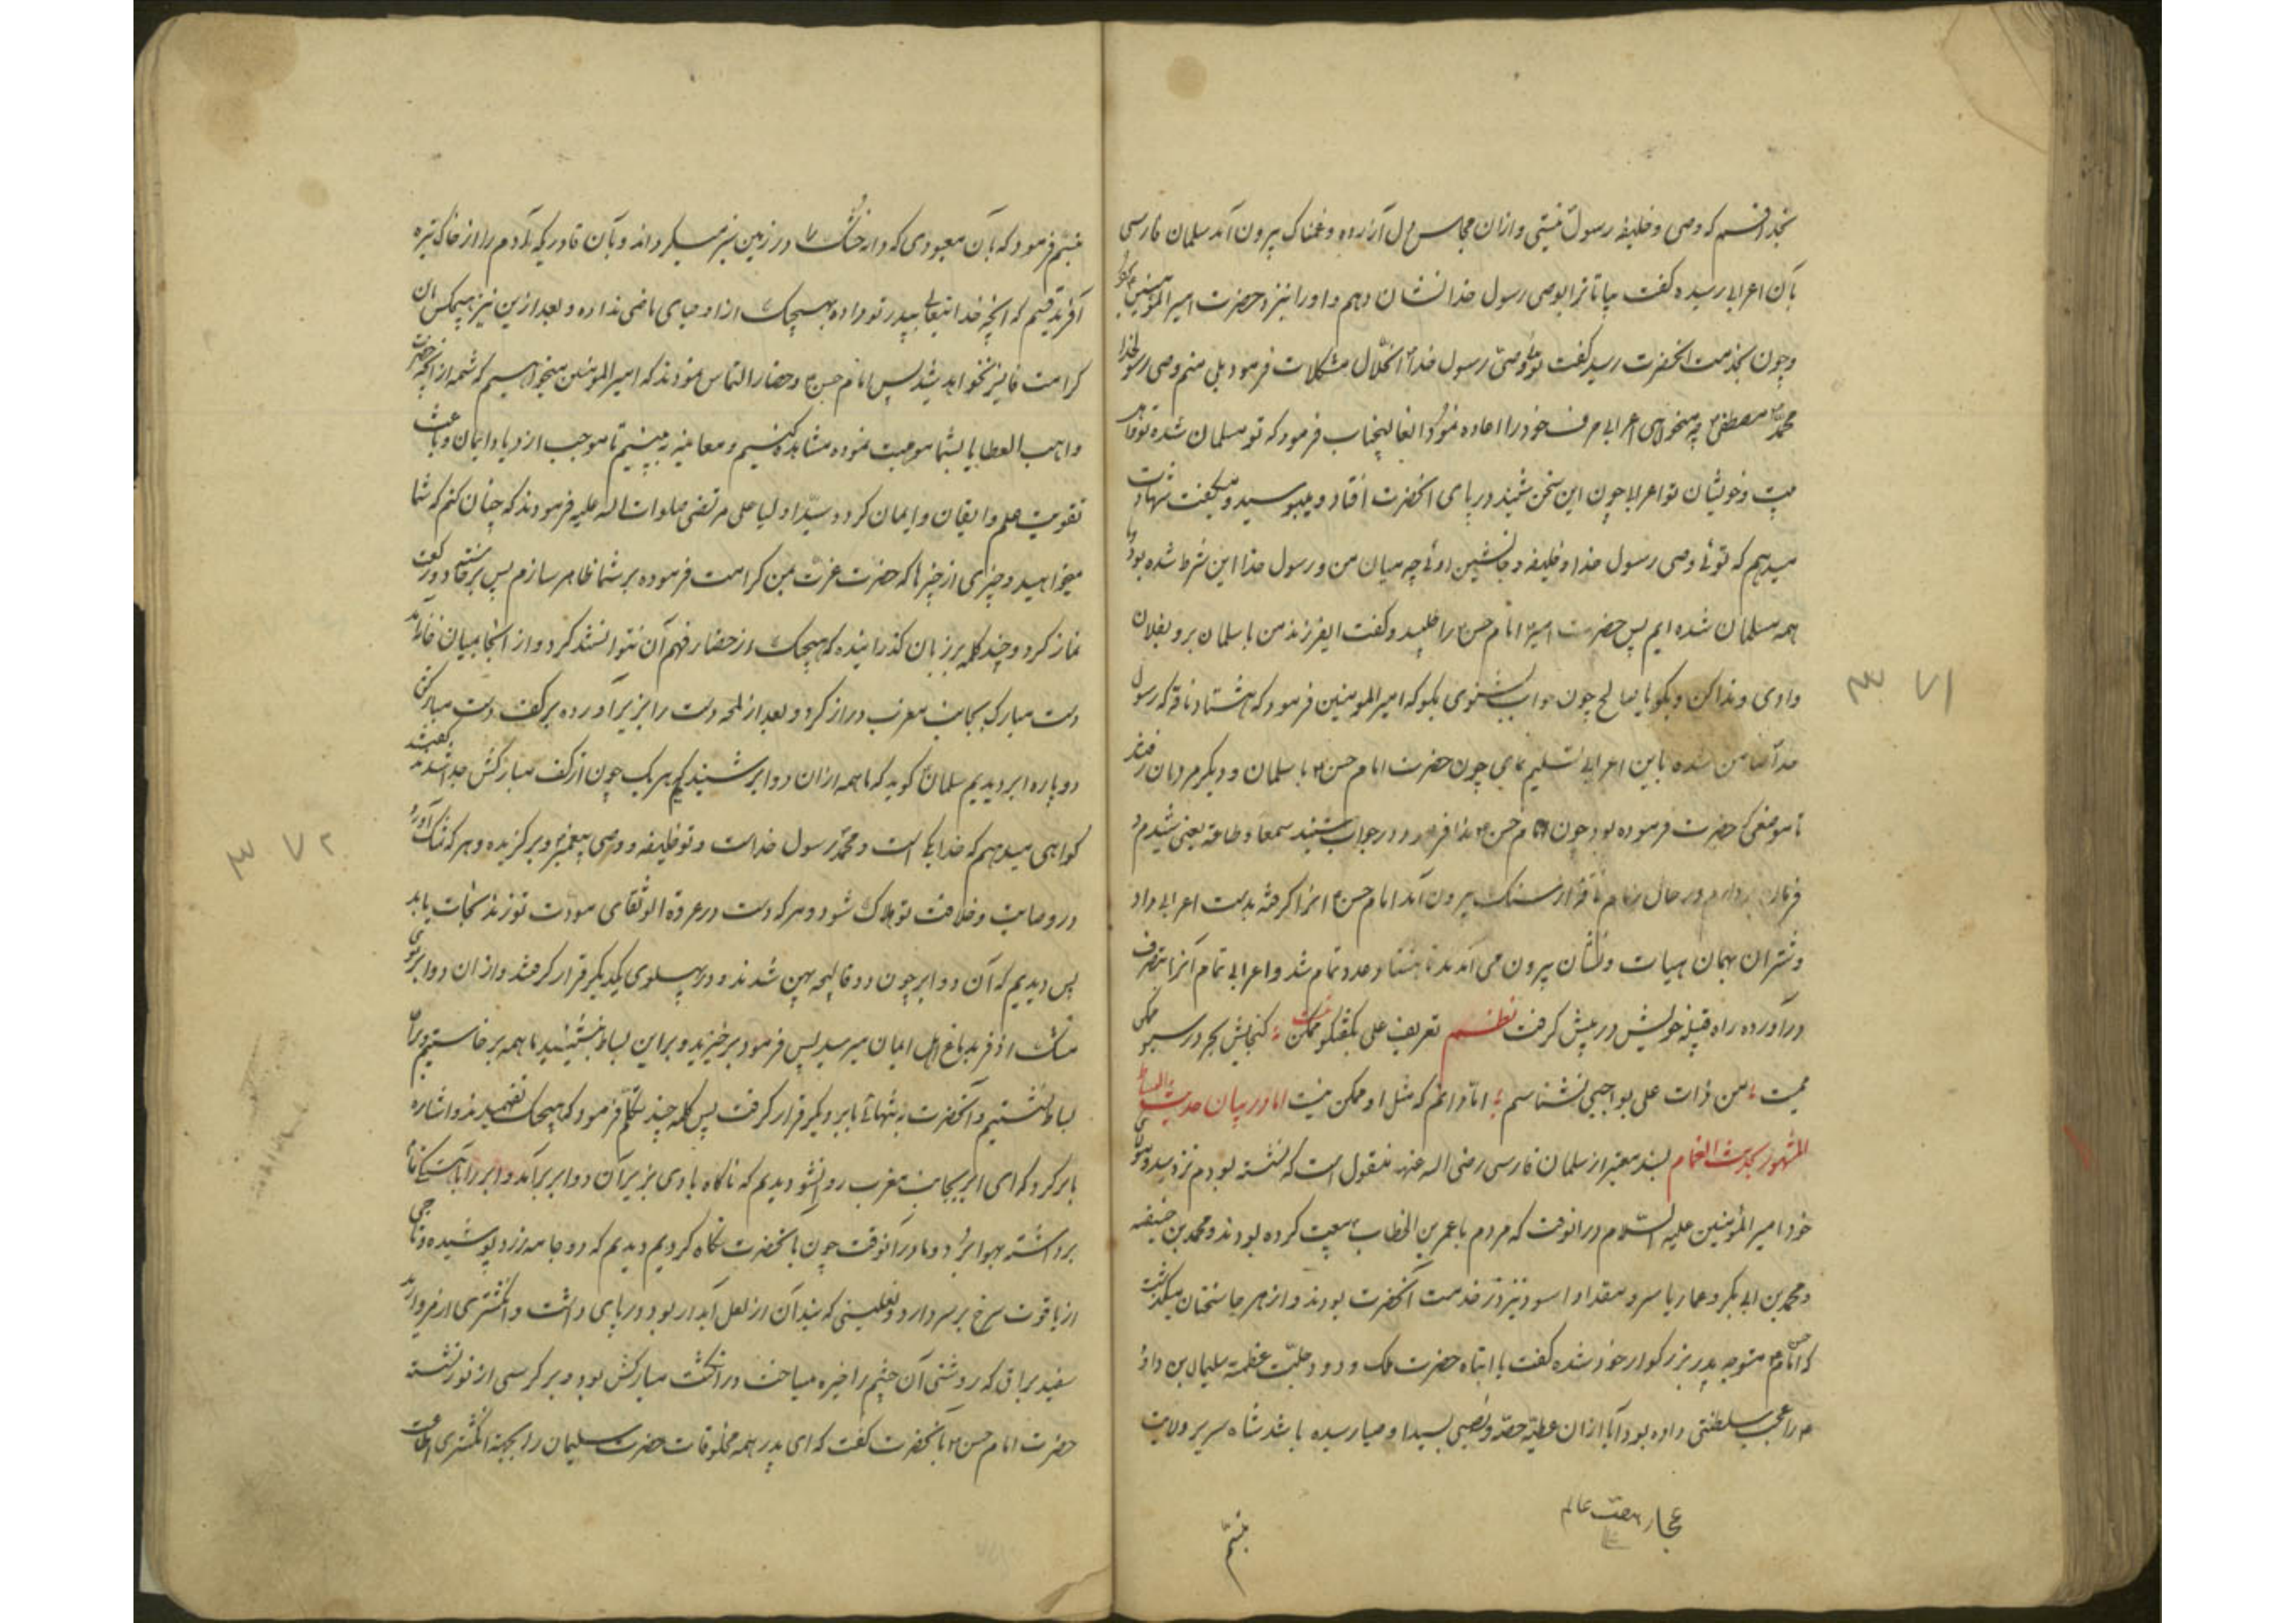 بخدا قسم که وصی و خلیفه رسول نیستی و ازان مجلس دل آزرده و غمناک بیرون آمد سلمان فارسی
بآن اعرابی رسیده گفت بیا تا ترا بوصی رسول خدا نشان دهم و او را بنزد حضرت امیرالمؤمنین
و چون بخدمت انحضرت رسید گفت توئی وصی رسول خدا حلال مشکلات فرمود بلی منم وصی رسول خدا
محمد مصطفی چه میخواهی اعرابی حرف خود را اعاده نمود انعالیجناب فرمود که تو مسلمان شده
و خویشان تو اعرابی چون این سخن شنید در پای انحضرت افتاد و میبوسید و میگفت شهادت
میدهم که توئی وصی رسول خدا و خلیفه و جانشین اوئی چه میان من و رسول خدا این شرط شده بود
همه مسلمان شده ایم پس حضرت امیر امام حسن را طلبید و گفت ایفرزند من با سلمان برو بفلان
وادی و ندا کن و بگو یا صالح چون جواب بشنوی بگو که امیرالمومنین فرمود که هشتاد ناقه که رسول
خدا ضامن شده باین اعرابی تسلیم نمای چون حضرت امام حسن با سلمان و دیگر مردمان رفتند
تا موضعی که حضرت فرموده بود چون امام حسن ندا فرمود در جواب شنیدند سمعا و طاعة یعنی شنیدم و
فرمان بردارم در حال زمام ناقه از سنگ بیرون آمد امام حسن انرا گرفته بدست اعرابی داد
و شتران بهمان هیات و نشان بیرون می آمدند تا هشتاد عدد تمام شد و اعرابی تمام آنرا بتصرف
درآورده راه قبیله خویش در پیش گرفت نظم تعریف علی بگفتگو ممکن نیست گنجایش بحر در سبو ممکن
نیست من ذات علی بواجبی نشناسم اما دانم که مثل او ممکن نیست اما در بیان حدیث البساط
المشهور بحدیث الغمام بسند معتبر از سلمان فارسی رضی الله عنه منقول است که نشسته بودم نزد سید و مولای
خود امیر المؤمنین علیه السلام در انوقت که مردم با عمر بن الخطاب بیعت کرده بودند و محمد بن حنیفه
و محمد بن ابی بکر و عمار یاسر و مقداد اسود نیز در خدمت آنحضرت بودند و از هر جا سخنان میگذشت
که امام حسن متوجه پدر بزرگوار خود شده گفت یا ابتاه حضرت ملک ودود جلّت عظمته سلیمان بن داود
را عجب سلطنتی داده بود آیا ازان عطیه حصه و نصیبی بسید اوصیا رسیده باشد شاه سریر ولایت
تبسم
تبسم فرمود که بآن معبودی که دانه خشک را در زمین سبز میگرداند و بآن قادریکه آدم را از خاک تیره
آفرید قسم که انچه خدایتعالی بپدر تو داده بهیچیک از اوصیای ماضی نداده و بعد ازین نیز هیچکس بان
کرامت فایز نخواهد شد پس امام حسن و حضار التماس نمودند که امیرالمومنین میخواهیم که شمه از انچه حضرت
واهب العطایا بشما موهبت نموده مشاهده کنیم و معاینه ببینیم تا موجب ازدیاد ایمان و باعث
تقویت علم و ایقان و ایمان گردد سید اولیا علی مرتضی صلوات الله علیه فرمودند که چنان کنم که شما
میخواهید و چیزی از چیزها که حضرت عزت بمن کرامت فرموده بر شما ظاهر سازم پس برخاست و دو رکعت
نماز کرد و چند کلمه بر زبان گذرانیده که هیچیک از حضار فهم آن نتوانستند کرد و از انجا بمیان خانه آمد
دست مبارک بجانب مغرب دراز کرد و بعد از لمحه دست را بزیر آورده بر کف دست مبارکش
دو پاره ابر دیدیم سلمان گوید که ما همه ازان دو ابر شنیدیم هر یک چون از کف مبارکش جدا شدند گفتند
گواهی میدهم که خدا یکی است و محمد رسول خداست و تو خلیفه و وصی پیغمبر و برگزیده و هر که شک آورد
در وصایت و خلافت تو هلاک شود و هر که دست در عروة الوثقای مودت تو زند نجات یابد
پس دیدیم که آن دو ابر چون دو قالیچه پهن شدند و در پهلوی یکدیگر قرار گرفتند و ازان دو ابر بوی
مشک اذفر بدماغ اهل ایمان میرسید پس فرمود برخیزید و براین بساط بنشینید ما همه برخاستیم و بران
بساط نشستیم و آنحضرت به تنهائی بابر دیگر قرار گرفت پس کلمه چند تکلم فرمود که هیچیک نفهمیدند و اشاره
بابر کرد که ای ابر بجانب مغرب روانشو دیدیم که ناگاه بادی بزیر آن دو ابر برآمد و ابر را باهستگی تمام
برداشته بهوا برد و ما درآنوقت چون بآنحضرت نگاه کردیم دیدیم که دو جامه زرد پوشیده و تاجی
از یاقوت سرخ بر سر دارد و نعلینی که بند آن از لعل آبدار بود در پای داشت و انگشتری از مروارید
سفید براق که روشنی آن چشم را خیره میساخت در انگشت مبارکش بود و بر کرسی از نور نشسته
حضرت امام حسن بآنحضرت گفت که ای پدر همه مخلوقات حضرت سلیمان را بجهة انگشتری اطاعت